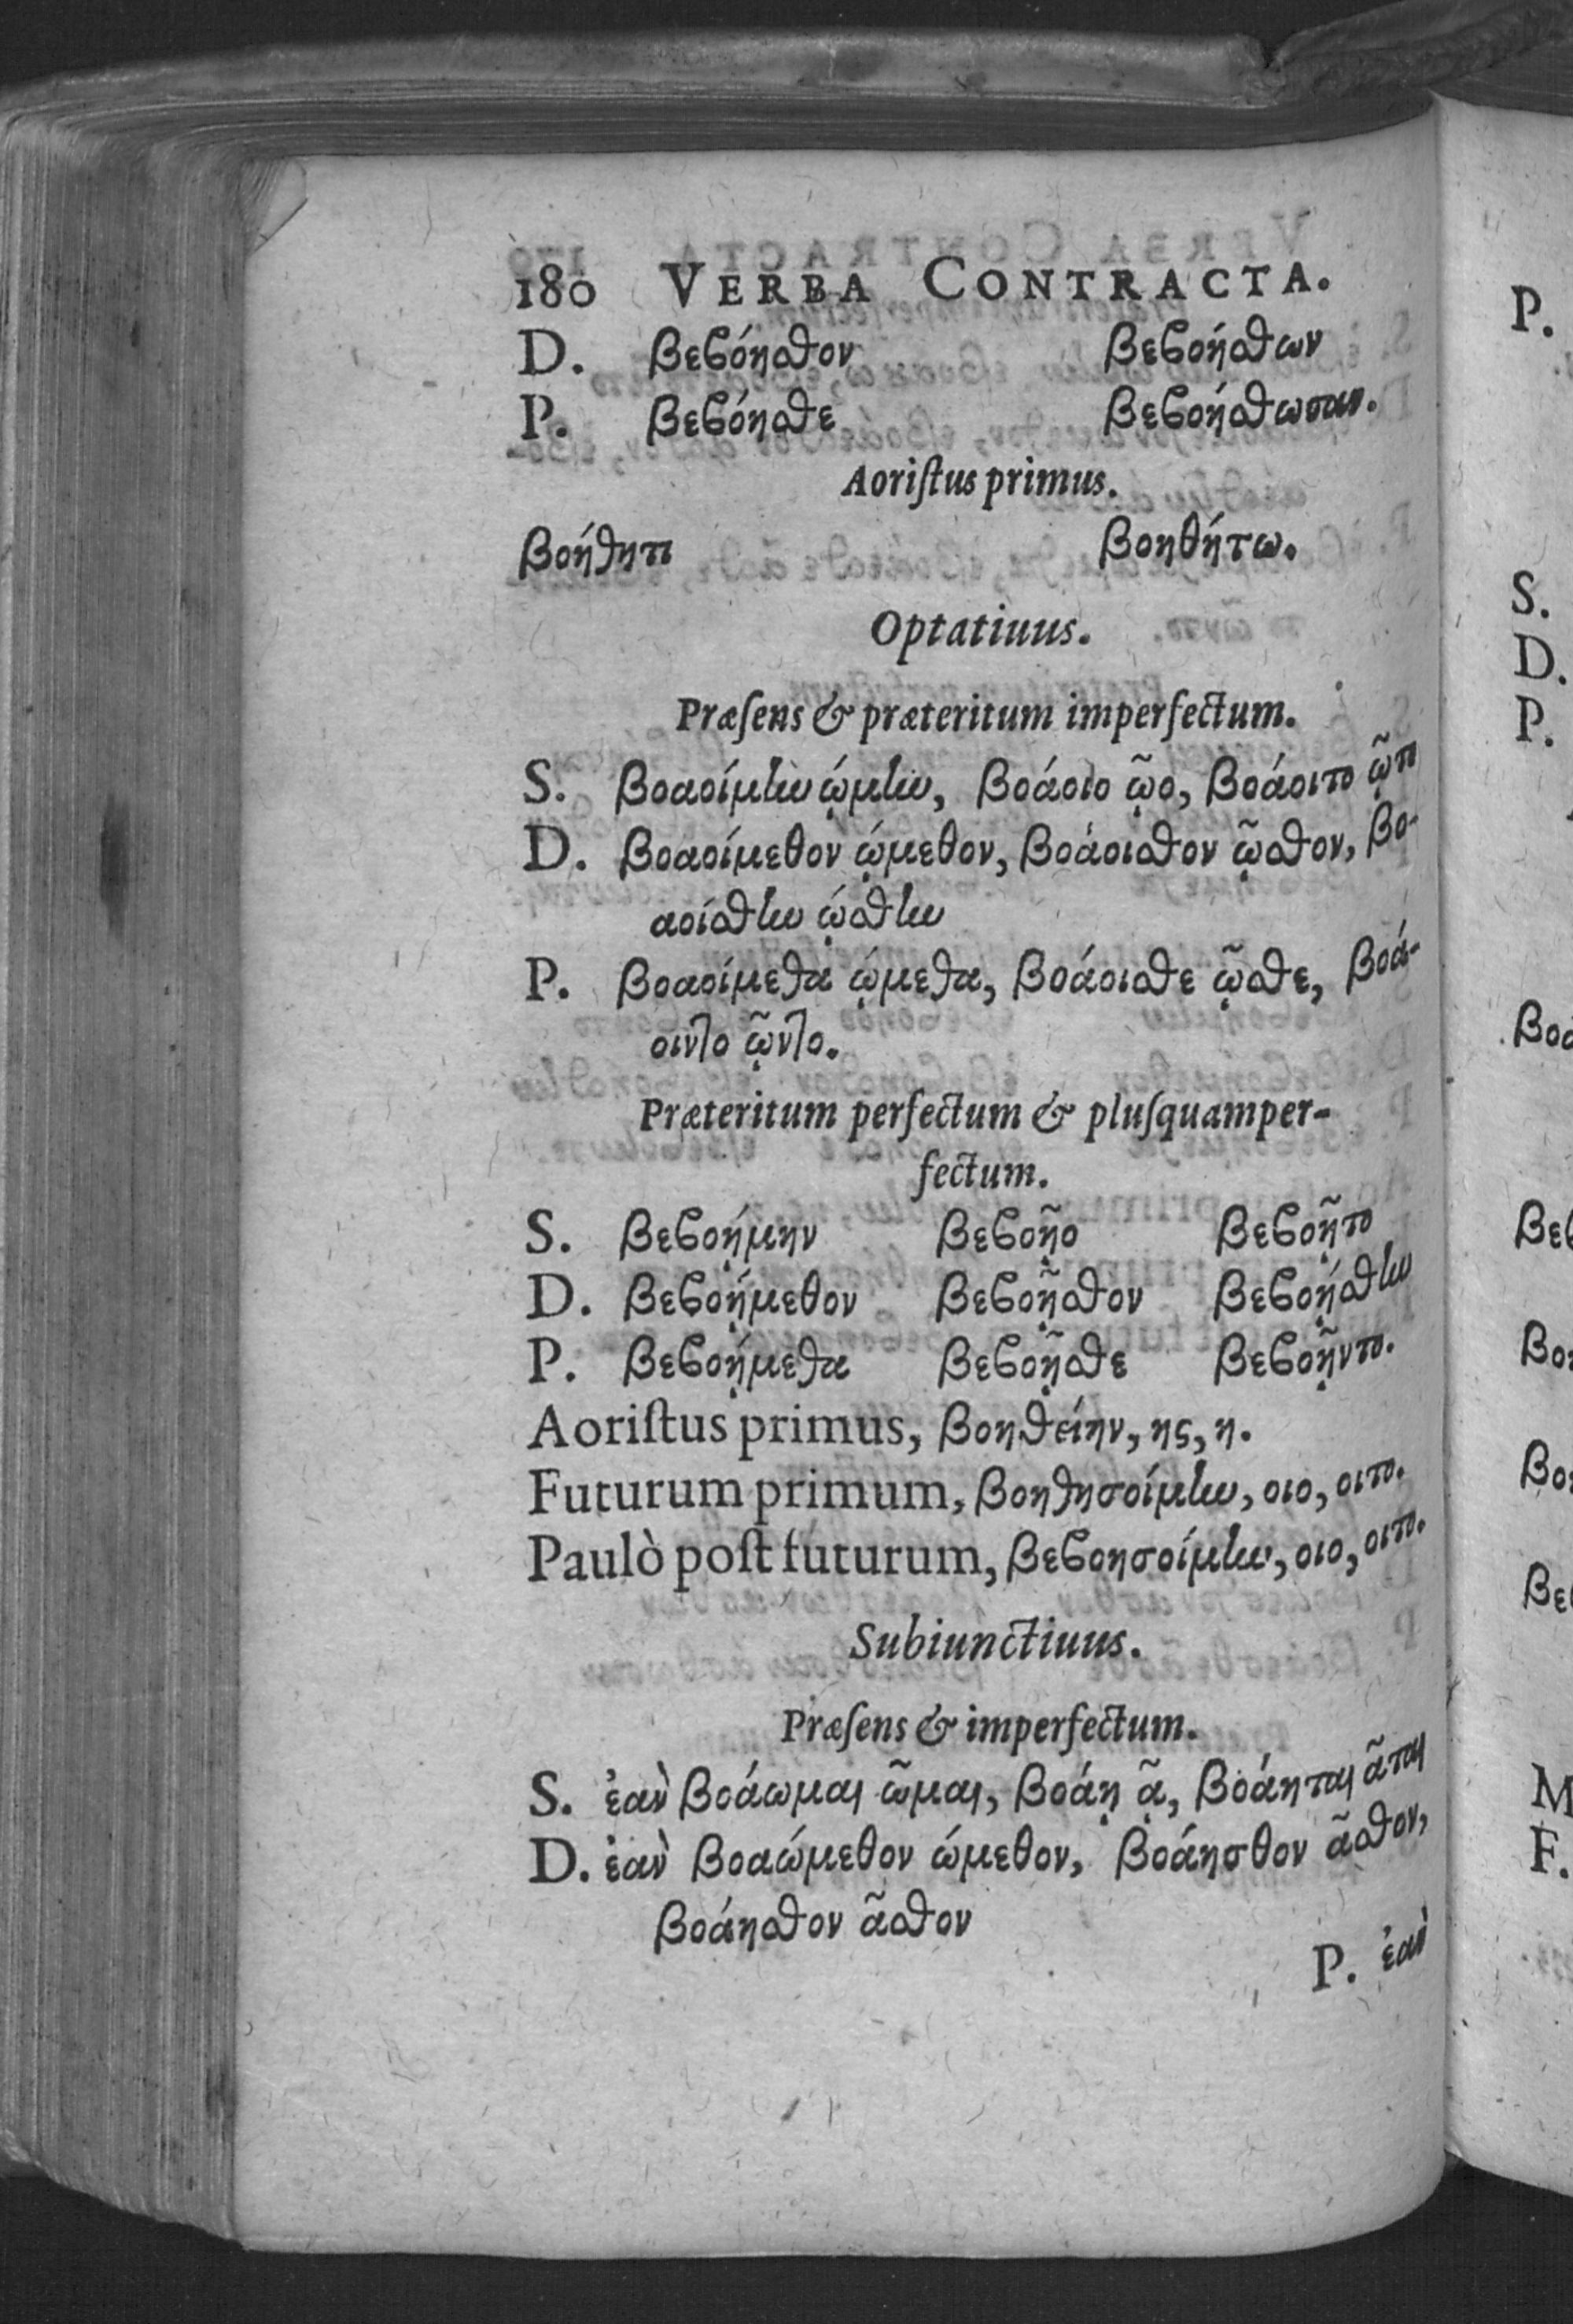 180 VERBA CONTRACTA.
D. βεβόησθον βεβοήσθων
P. βεβόησθε βεβοήσθωσαν.
Aoriſtus primus.
βοήθητι βοηθήτω.
Optatiuus.
Præſens & præteritum imperfectum.
S. βοαοίμην ῴμην, βοάοιο ῷο, βοάοιτο ῷτο
D. βοαοίμεθον ῴμεθον, βοάοισθον ῷσθον, βο-
αοίσθην ῴσθην
P. βοαοίμεθα ῴμεθα, βοάοισθε ῷσθε, βοά-
οιντο ῷντο.
Præteritum perfectum & pluſquamper-
fectum.
S. βεβοῄμην βεβοῇο βεβοῇτο
D. βεβοῄμεθον βεβοῇσθον βεβοῄσθην
P. βεβοῄμεθα βεβοῇσθε βεβοῇντο.
Aoriſtus primus, βοηθείην, ης, η.
Futurum primum, βοηθησοίμην, οιο, οιτο.
Paulò poſt futurum, βεβοησοίμην, οιο, οιτο.
Subiunctiuus.
Præſens & imperfectum.
S. ἐαν̀ βοάωμαι ῶμαι, βοάῃ ᾷ, βοάηται ᾶται
D. ἐαν̀ βοαώμεθον ώμεθον, βοάησθον ᾶσθον,
βοάησθον ᾶσθον
P. ἐαν̀
P.
S.
D.
P.
M
F.